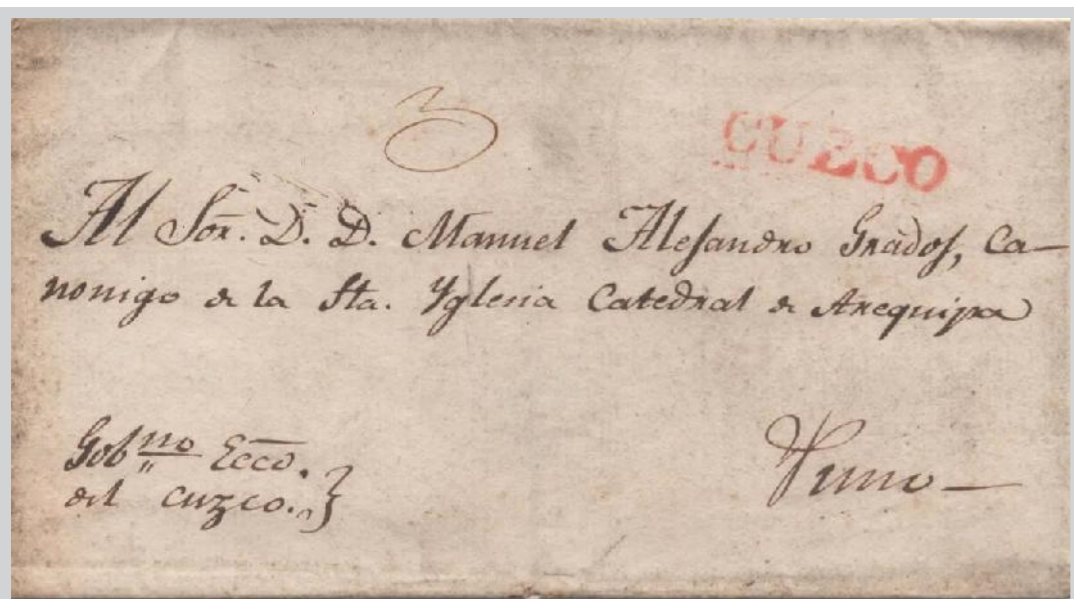 3
CUZCO
Al Sor. D. D. Manuel Alejandro Grados, Ca-
nonigo de la Sta. Yglesia Catedral de Arequipa
Gobno Ecco.
del Cuzco.
Puno